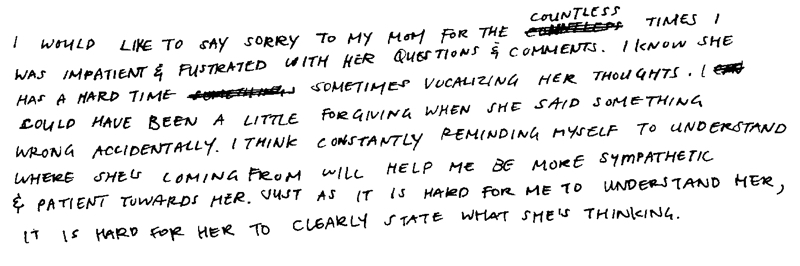 I WOULD LIKE TO SAY SORRY TO MY MOM FOR THE COUNTLESS TIMES I
WAS IMPATIENT & FUSTRATED WITH HER QUESTIONS & COMMENTS. I KNOW SHE
HAS A HARD TIME SOMETIMES VOCALIZING HER THOUGHTS. I
COULD HAVE BEEN A LITTLE FORGIVING WHEN SHE SAID SOMETHING
WRONG ACCIDENTALLY. I THINK CONSTANTLY REMINDING MYSELF TO UNDERSTAND
WHERE SHE'S COMING FROM WILL HELP ME BE MORE SYMPATHETIC
& PATIENT TOWARDS HER. JUST AS IT IS HARD FOR ME TO UNDERSTAND HER,
IT IS HARD FOR HER TO CLEARLY STATE WHAT SHE'S THINKING.